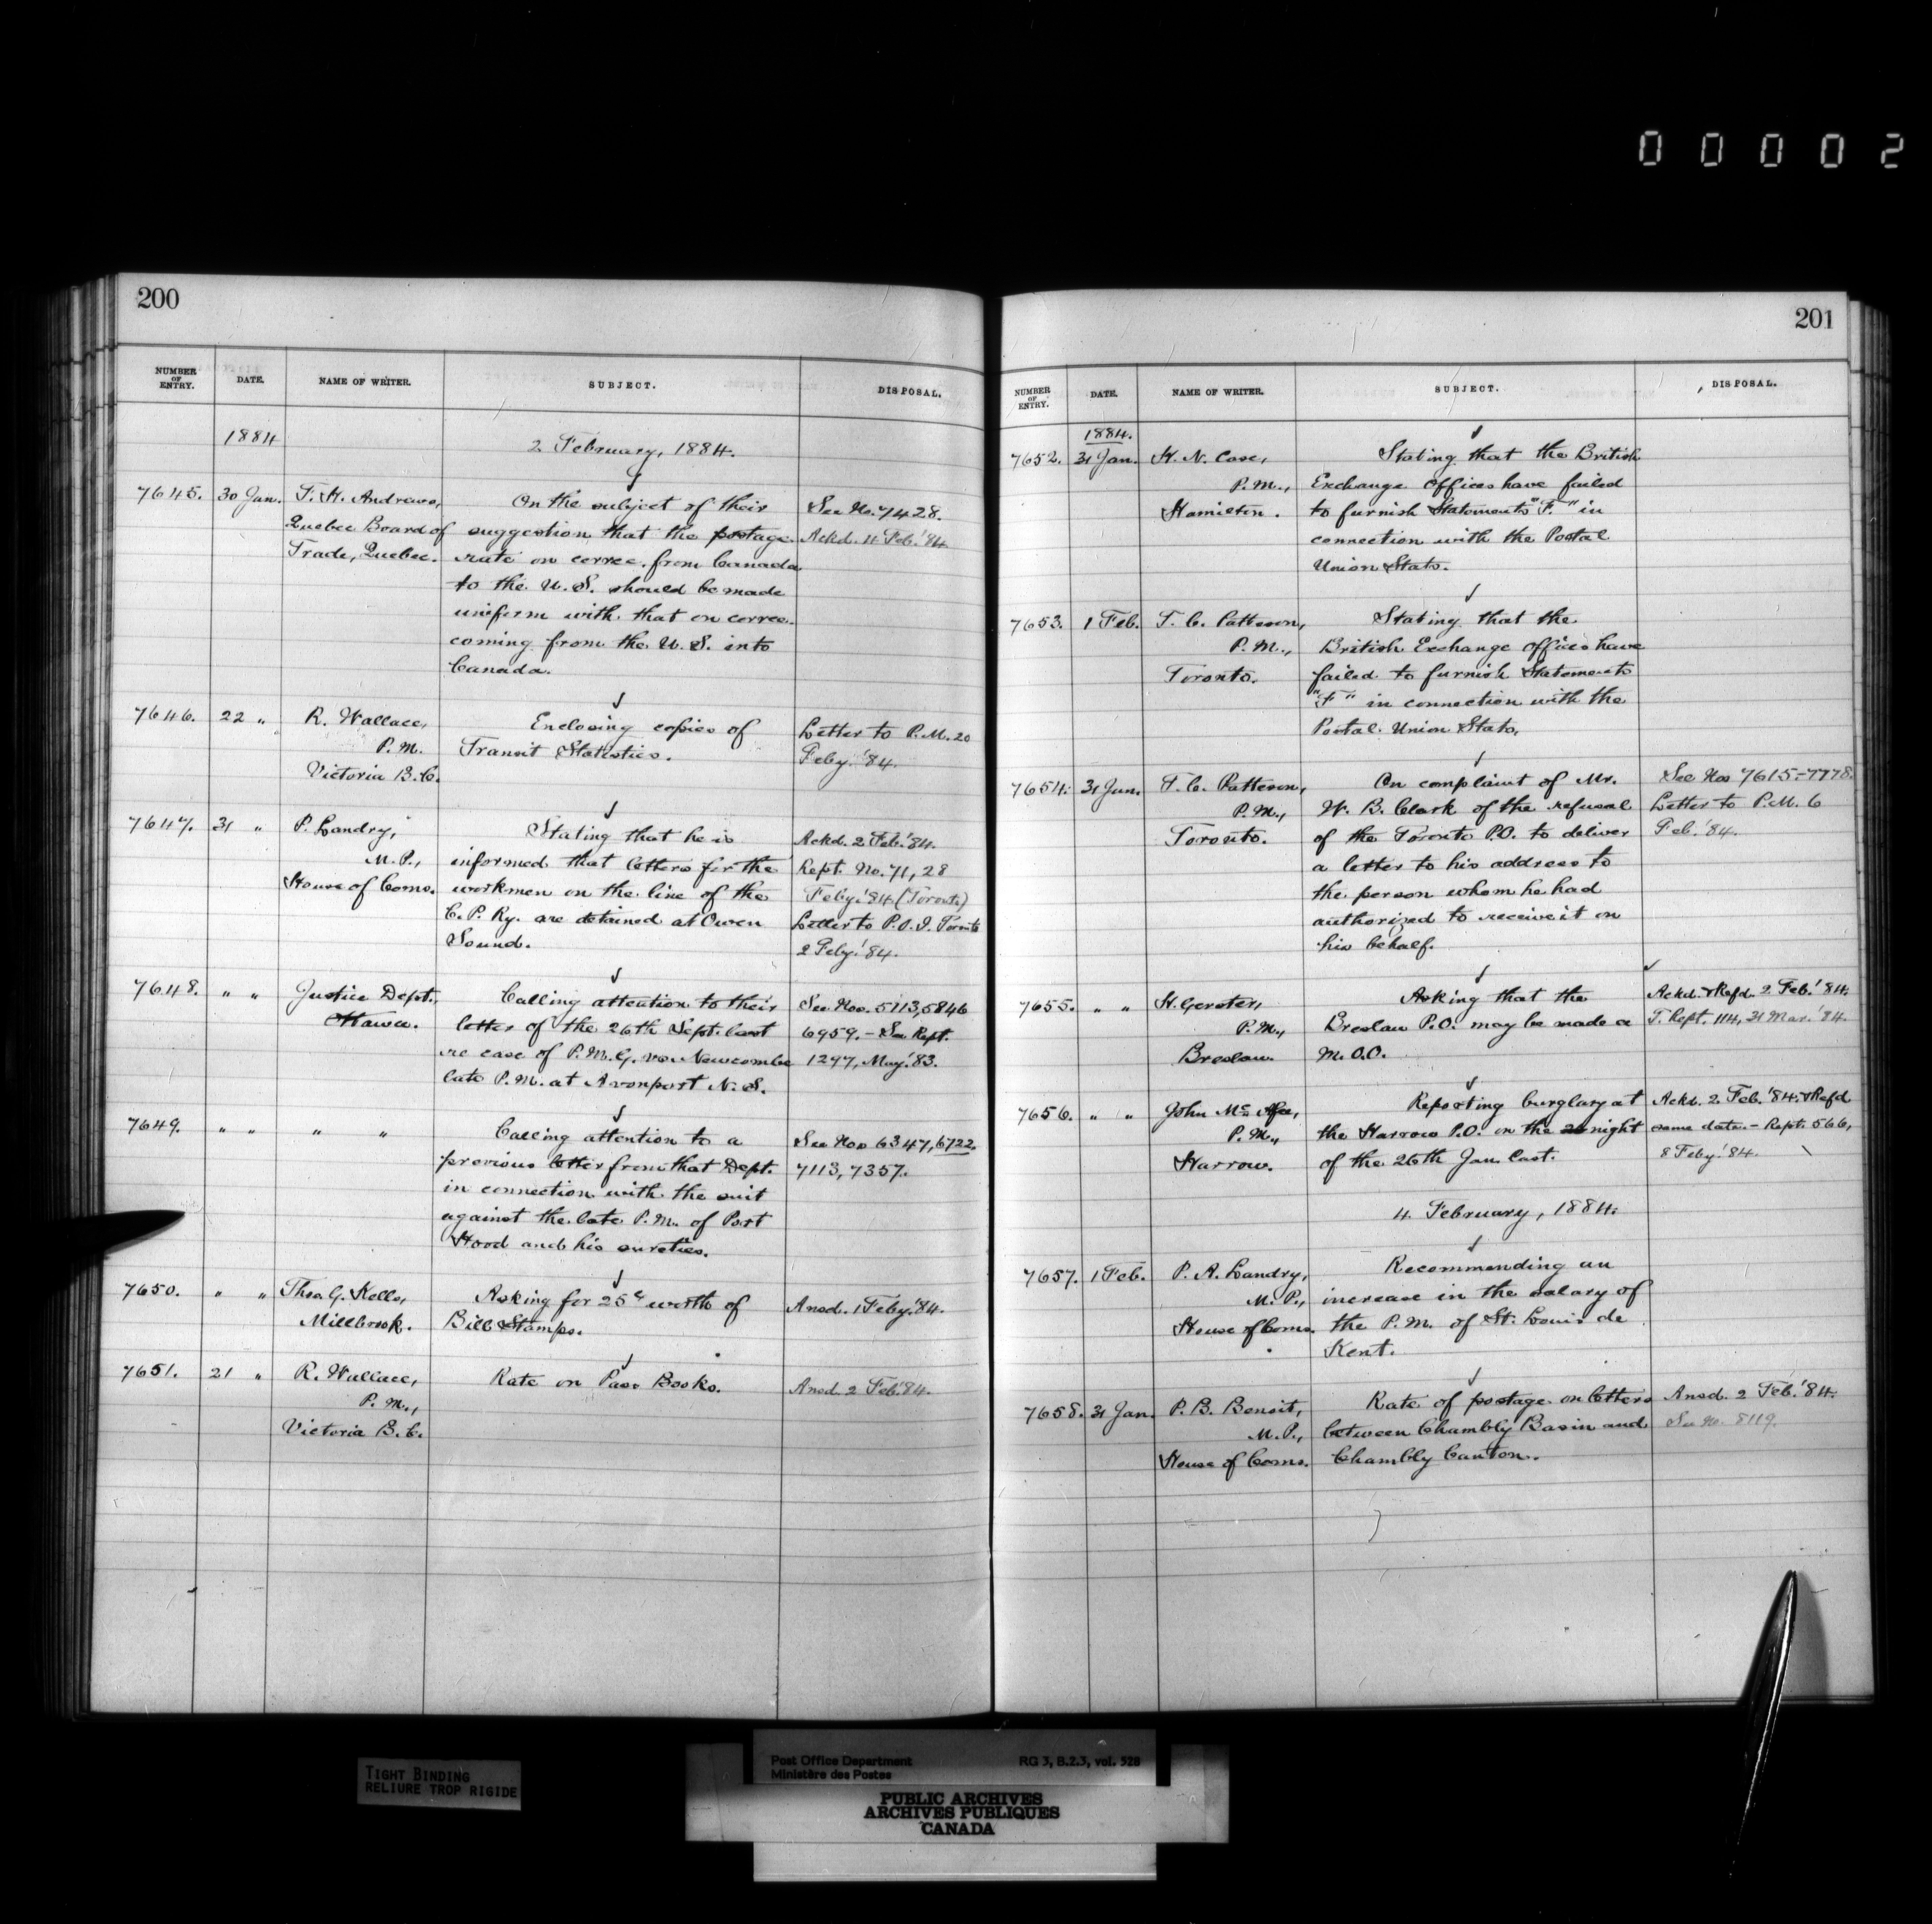 00002
200
NUMBER OF ENTRY. DATE. NAME OF WRITER. SUBJECT. DISPOSAL.
1884
2 February, 1884.
7645. 30 Jan. F. H. Andrews, On the subject of their See No. 7428.
Quebec Board of suggestion that the postage Ackd. 4 Feb. '84
Trade, Quebec. rate on corres. from Canada
to the U. S. should be made
uniform with that on corres.
coming from the U. S. into
Canada.
7646. 22 " R. Wallace, Enclosing copies of Letter to P.M. 20
P. M. Transit Statistics. Feby. '84.
Victoria B.C.
7647. 31 " P. Landry, Stating that he is Ackd. 2 Feb. '84.
M. P., informed that letters for the Rept. No. 71, 28
House of Coms. workmen on the line of the Feby. '84 (Toronto)
C. P. Ry. are detained at Owen Letter to P.O.I. Toronto
Sound. 2 Feby. '84.
7648. " " Justice Dept. Calling attention to their See Nos. 5113, 5846
Ottawa. letter of the 26th Sept. last 6959. - See Rept.
re case of P.M.G. vs. Newcombe 1297, May '83.
late P.M. at Avonport N. S.
7649. " " " " Calling attention to a See Nos 6347, 6722.
previous letter from that Dept. 7113, 7357.
in connection with the suit
against the late P.M. of Port
Hood and his sureties.
7650. " " Thos G. Kells, Asking for 25c worth of Ansd. 1 Feby. '84.
Millbrook. Bill Stamps.
7651. 21 " R. Wallace, Rate on Pass Books. Ansd 2 Feb. '84.
P. M.,
Victoria B. C.
201
NUMBER OF ENTRY. DATE. NAME OF WRITER. SUBJECT. DISPOSAL.
1884.
7652. 31 Jan. H. N. Case, Stating that the British
P. M., Exchange Offices have failed
Hamilton. to furnish Statements "F." in
connection with the Postal
Union Stats.
7653. 1 Feb. T. C. Patteson, Stating that the
P. M., British Exchange Offices have
Toronto. failed to furnish Statements
"F" in connection with the
Postal Union Stats.
7654. 31 Jan. T. C. Patteson, On complaint of Mr. See Nos 7615-7778.
P. M., W. B. Clark of the refusal Letter to P.M. 6
Toronto. of the Toronto P.O. to deliver Feb. '84.
a letter to his address to
the person whom he had
authorized to receive it on
his behalf.
7655. " " H. Gerster, Asking that the Ackd. & Refd. 2 Feb. '84.
P. M., Breslau P.O. may be made a T. Rept. 114, 31 Mar. '84.
Breslau M. O. O.
7656. " " John Mc Afee, Reporting burglary at Ackd. 2 Feb. '84. & Refd
P. M., the Harrow P.O. on the night same date. - Rept. 566,
Harrow. of the 26th Jan. last. 8 Feby. '84.
4 February, 1884.
7657. 1 Feb. P. A. Landry, Recommending an
M. P., increase in the salary of
House of Coms. the P. M. of St. Louis de
Kent.
7658. 31 Jan. P. B. Benoit, Rate of postage on letters Ansd. 2 Feb. '84.
M. P., between Chambly Basin and See No. 8119.
House of Coms. Chambly Canton.
TIGHT BINDING
RELIURE TROP RIGIDE
Post Office Department RG 3, B.2.3, vol. 528
Ministère des Postes
PUBLIC ARCHIVES
ARCHIVES PUBLIQUES
CANADA